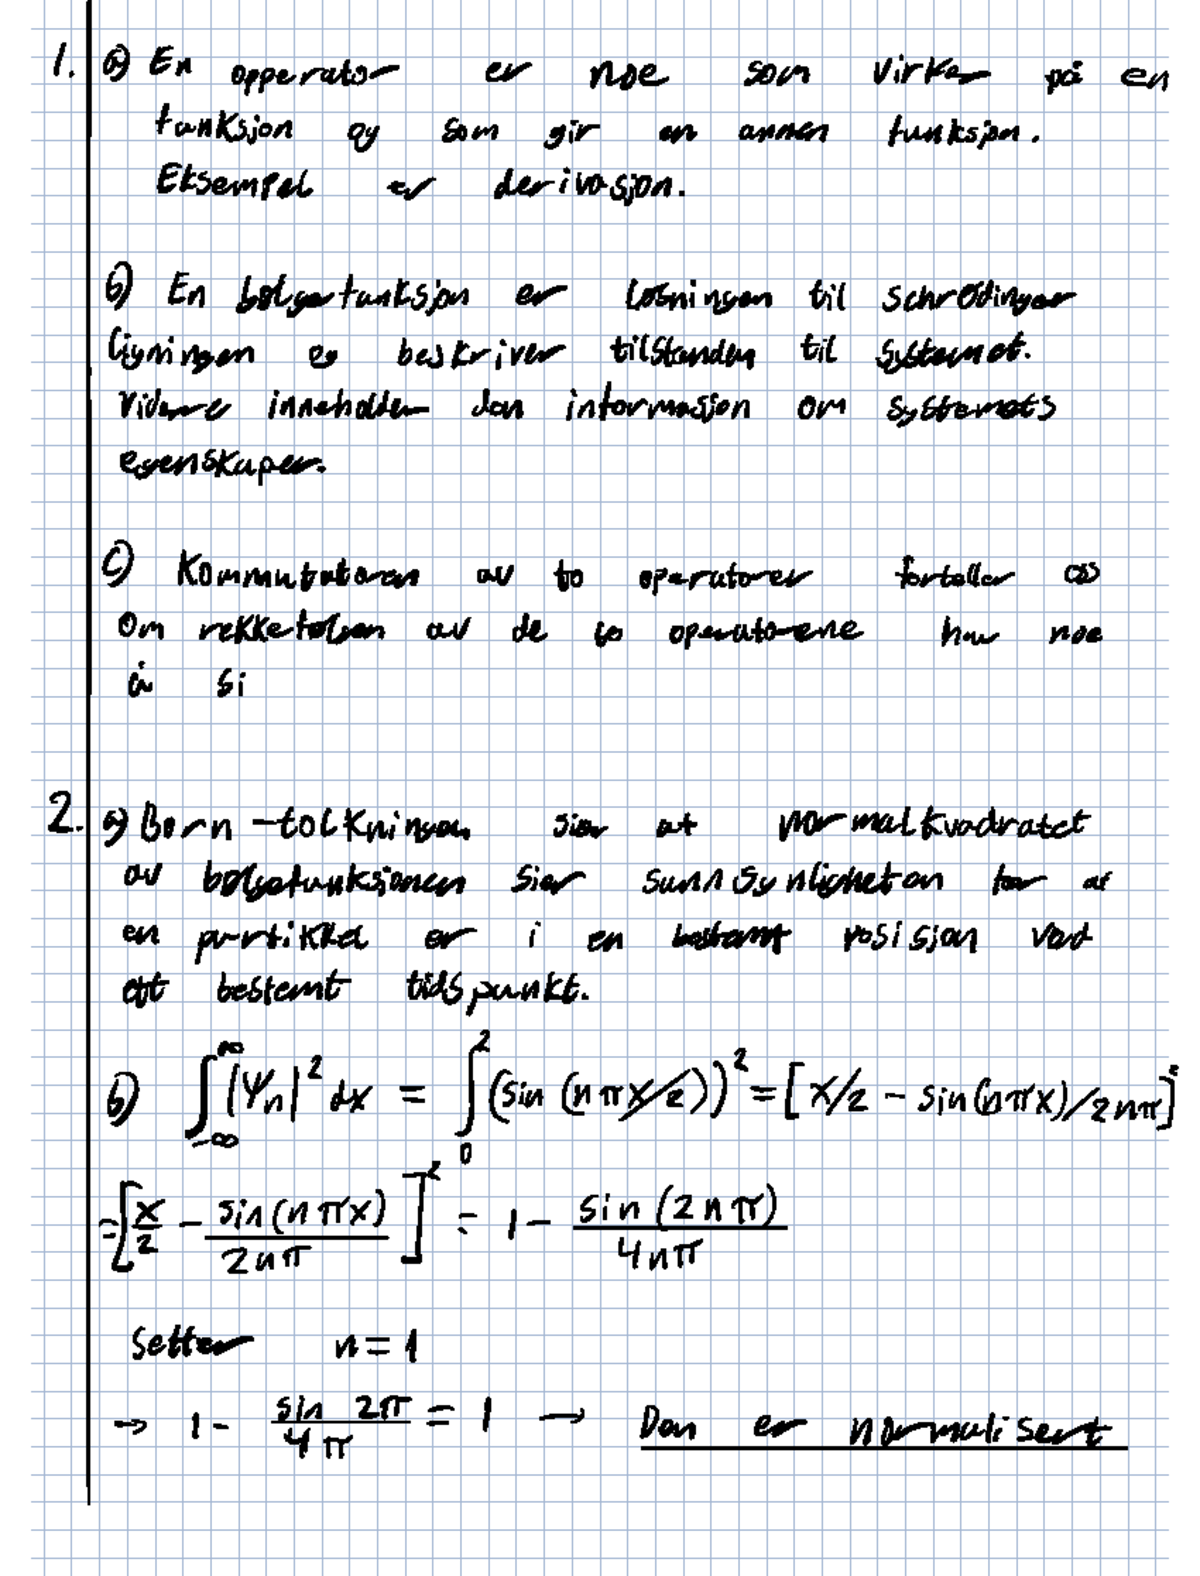 1. a) En opperator er noe som virker på en
funksjon og som gir en annen funksjon.
Eksempel er derivasjon.
b) En bølgefunksjon er løsningen til schrødinger
ligningen og beskriver tilstanden til systemet.
Videre inneholder den informasjon om systemets
egenskaper.
c) Kommutatoren av to operatorer forteller oss
om rekkefølgen av de to operatorene har noe
å si
2. a) Born-tolkningen sier at normalkvadratet
av bølgefunksjonen sier sunnsynligheten for at
en partikkel er i en bestemt posisjon ved
ett bestemt tidspunkt.
b) ∫_{-∞}^{∞} |Ψn|² dx = ∫_0^2 (sin (nπx/2))² = [x/2 - sin(nπx)/2nπ]²
= [x/2 - sin(nπx)/2nπ]² = 1 - sin(2nπ)/4nπ
Setter n = 1
→ 1 - sin 2π/4π = 1 → Den er normalisert